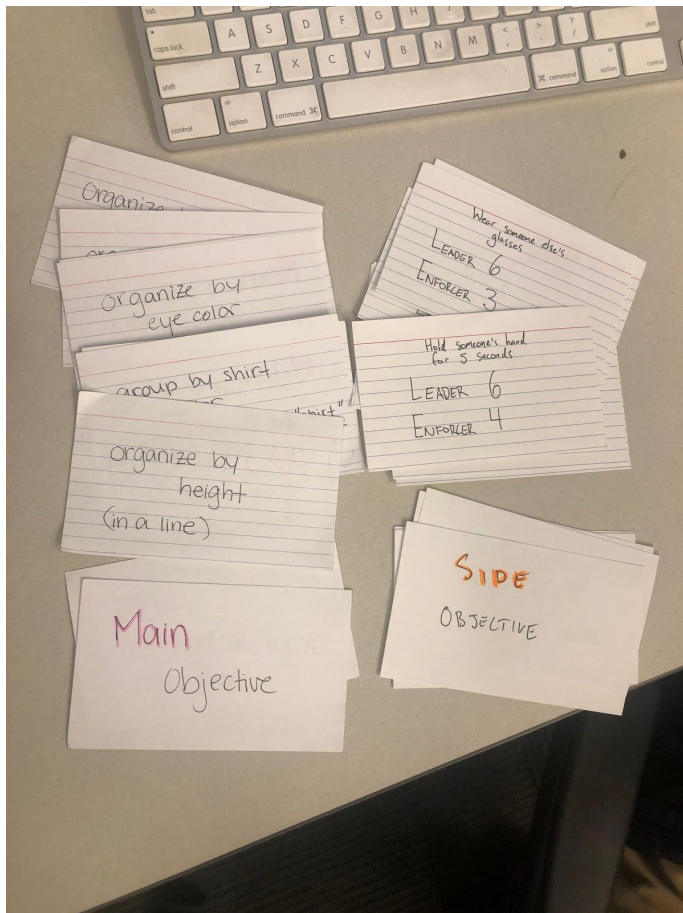 tab
caps lock
A S D F G H J
shift
Z X C V B N M < , > . ? /
shift
control
alt
option
command ⌘
⌘ command
alt
option
control
Organize
organize by
eye color
group by shirt
"shirt"
organize by
height
(in a line)
Main
Objective
Wear someone else's
glasses
LEADER 6
ENFORCER 3
Hold someone's hand
for 5 seconds
LEADER 6
ENFORCER 4
SIDE
OBJECTIVE